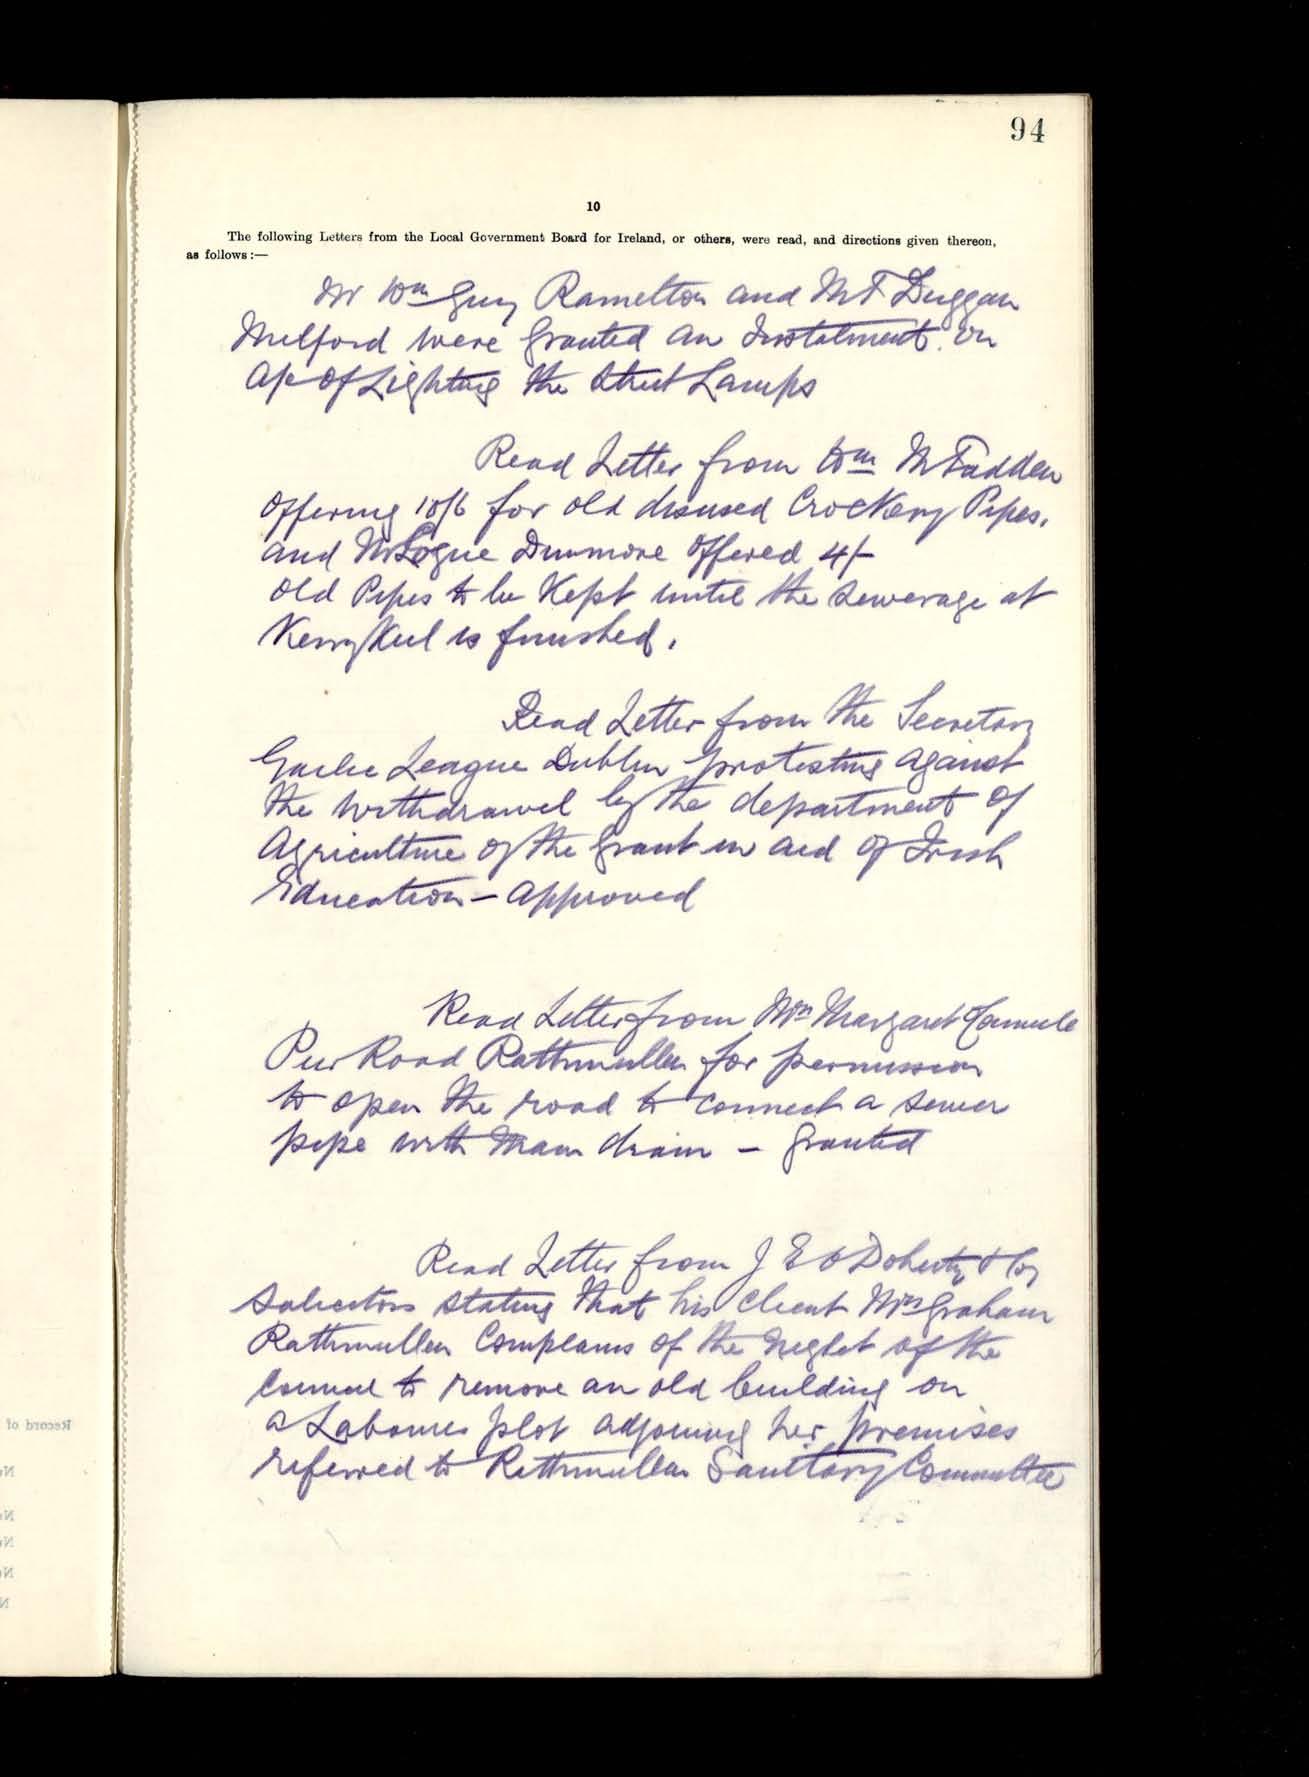 94
10
The following Letters from the Local Government Board for Ireland, or others, were read, and directions given thereon,
as follows:—
Mr Wm Guy Ramelton and Mr F Duggan
Milford were granted an Instalment. on
a/c of Lighting the Street Lamps
Read Letter from Wm McFadden
offering 10/6 for old disused Crockery Pipes.
and Mr Logue Dunmore offered 4/-
old Pipes to be Kept until the sewerage at
Kerrykeel is finished.
Read Letter from the Secretary
Gaelic League Dublin protesting against
the withdrawel by the department of
Agriculture of the Grant in aid of Irish
Education — approved
Read Letter from Mrs Margaret
Pier Road Rathmullen for permission
to open the road to connect a sewer
pipe with Main drain — Granted
Read Letter from J E O Doherty & Coy
Solicitors stating that his client Mrs Graham
Rathmullen Complains of the neglet of the
Council to remove an old building on
a Labourers plot adjoining her premises
referred to Rathmullen Sanitary Committee
Record of